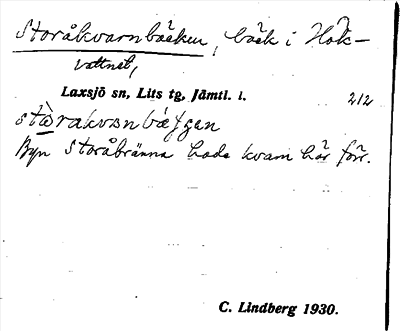 Storåkvarnbäcken, bäck i Hök-
vattnet,
Laxsjö sn, Lits tg, Jämtl. l. 212
Byn Storåbränna hade kvarn här förr.
C. Lindberg 1930.